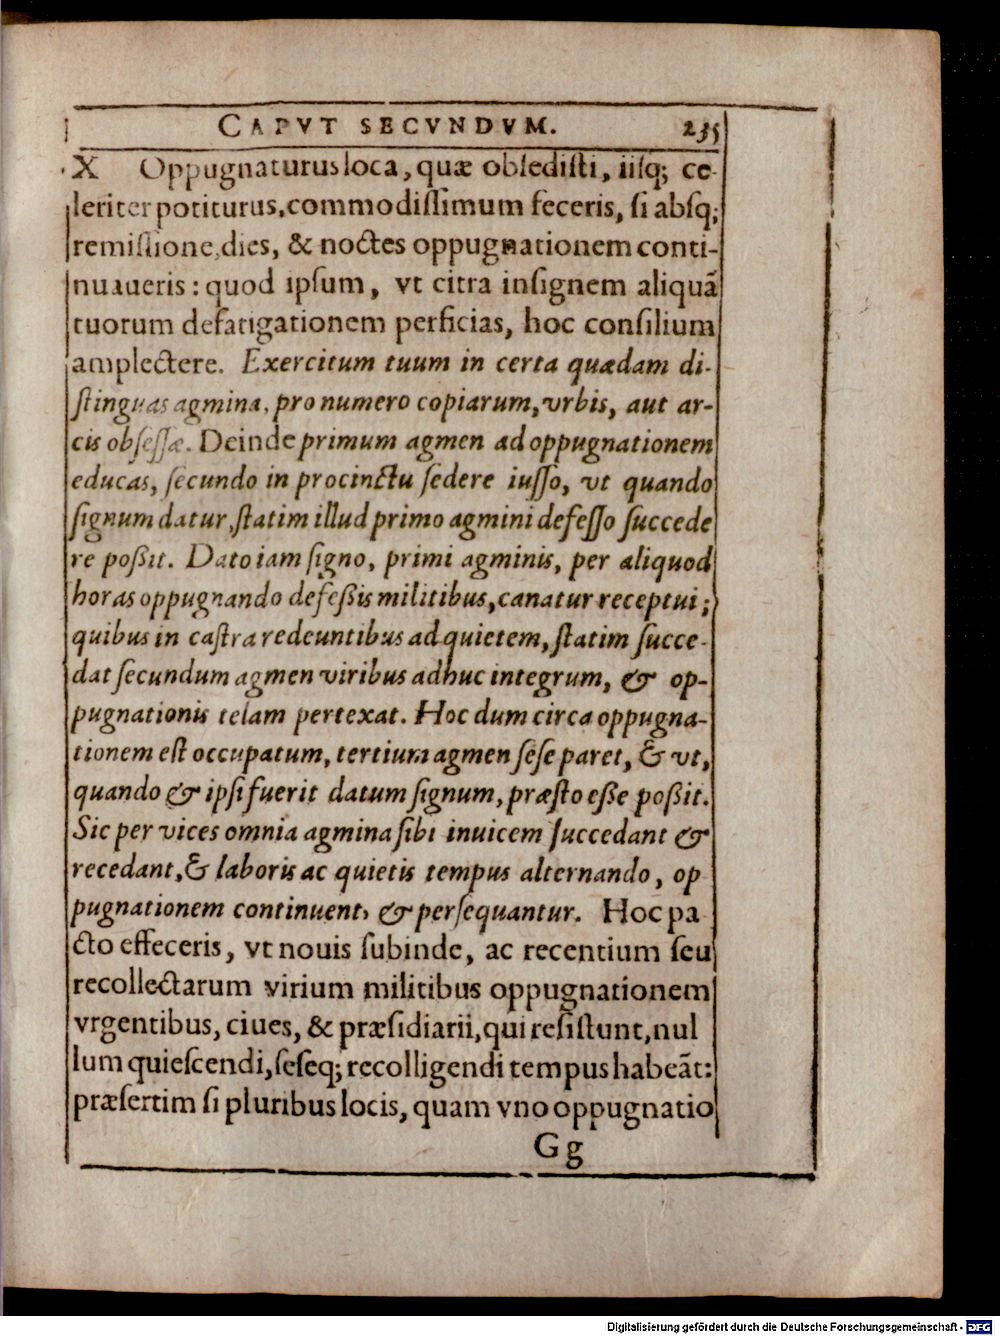 CAPVT SECVNDVM. 235
X Oppugnaturus loca, quæ obſediſti, iiſq; ce-
leriter potiturus, commodiſſimum feceris, ſi abſq;
remiſſione, dies, & noctes oppugnationem conti-
nuaueris: quod ipſum, vt citra inſignem aliquã
tuorum defatigationem perficias, hoc conſilium
amplectere. Exercitum tuum in certa quædam di-
ſtinguas agmina, pro numero copiarum, vrbis, aut ar-
cis obſeſſæ. Deinde primum agmen ad oppugnationem
educas, ſecundo in procinctu ſedere iuſſo, vt quando
ſignum datur, ſtatim illud primo agmini defeſſo ſuccede
re poßit. Dato iam ſigno, primi agminis, per aliquod
horas oppugnando defeßis militibus, canatur receptui;
quibus in caſtra redeuntibus ad quietem, ſtatim ſucce-
dat ſecundum agmen viribus adhuc integrum, & op-
pugnationis telam pertexat. Hoc dum circa oppugna-
tionem eſt occupatum, tertium agmen ſeſe paret, & vt,
quando & ipſi fuerit datum ſignum, præſto eße poßit.
Sic per vices omnia agmina ſibi inuicem ſuccedant &
recedant, & laboris ac quietis tempus alternando, op
pugnationem continuent, & perſequantur. Hoc pa
cto effeceris, vt nouis ſubinde, ac recentium ſeu
recollectarum virium militibus oppugnationem
vrgentibus, ciues, & præſidiarii, qui reſiſtunt, nul
lum quieſcendi, ſeſeq; recolligendi tempus habeãt:
præſertim ſi pluribus locis, quam vno oppugnatio
Gg
Digitalisierung gefördert durch die Deutsche Forschungsgemeinschaft - DFG